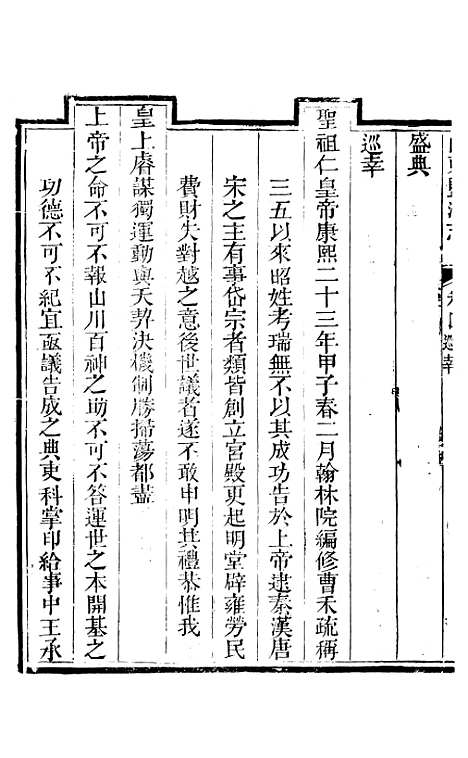 盛典
巡幸
聖祖仁皇帝康熙二十三年甲子春二月翰林院編修曹禾疏稱
三五以來昭姓考瑞無不以其成功告於上帝逮秦漢唐
宋之主有事岱宗者類皆創立宮殿更起明堂辟雍勞民
費財失對越之意後世議者遂不敢申明其禮恭惟我
皇上睿謀獨運動與天契決機制勝掃蕩都盡
上帝之命不可不報山川百神之助不可不答運世之本開基之
功德不可不紀宜亟議告成之典吏科掌印給事中王承